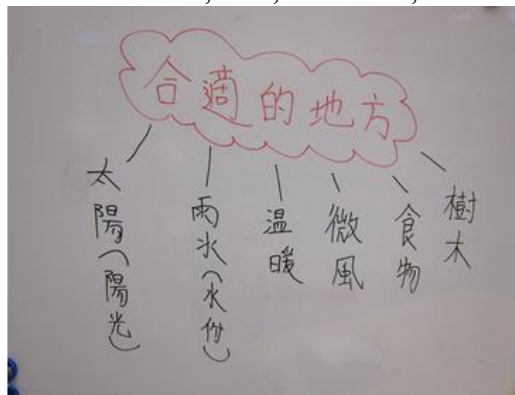 合適的地方
太陽(陽光)
雨水(水份)
温暖
微風
食物
樹木